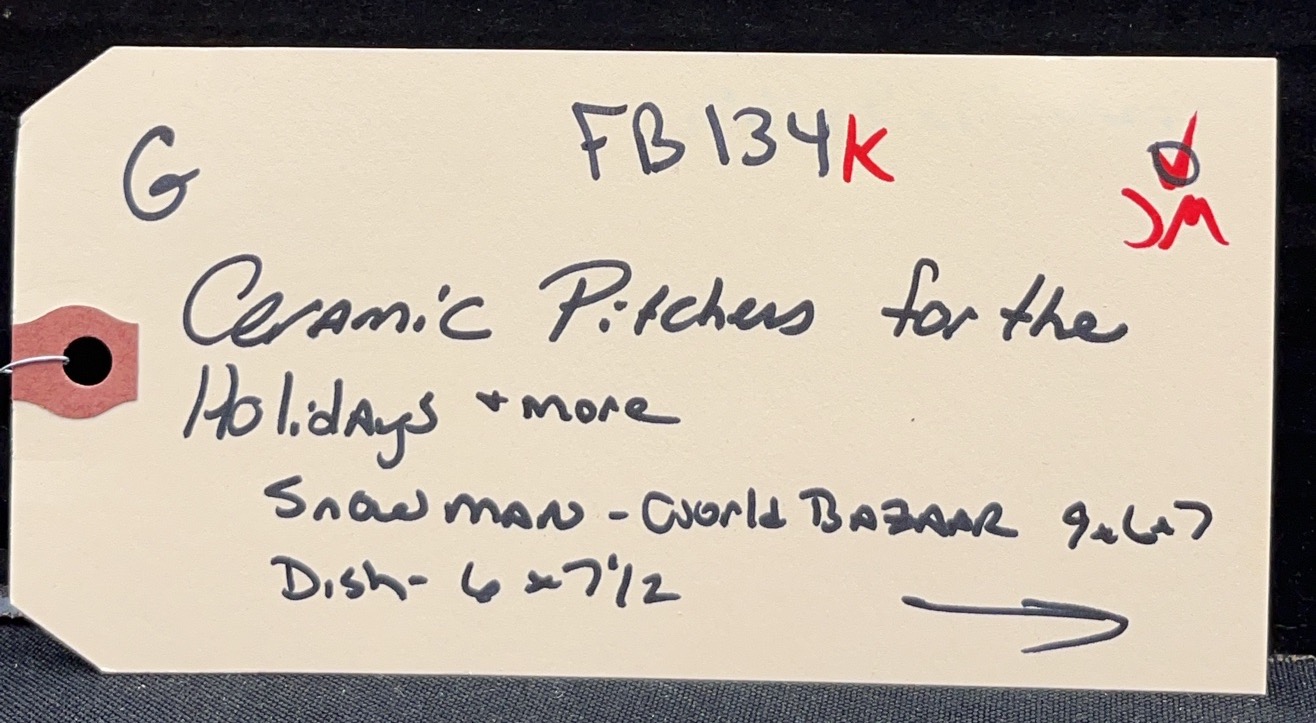 G FB134K
JM
Ceramic Pitchers for the
Holidays + more
Snowman - World Bazaar 9x6x7
Dish - 6 x 7 1/2